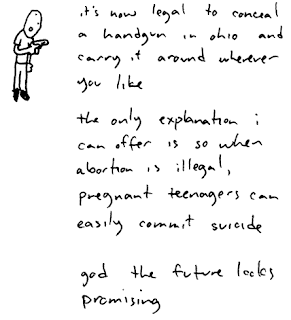 it's now legal to conceal
a handgun in ohio and
carry it around wherever
you like
the only explanation i
can offer is so when
abortion is illegal,
pregnant teenagers can
easily commit suicide
god the future looks
promising